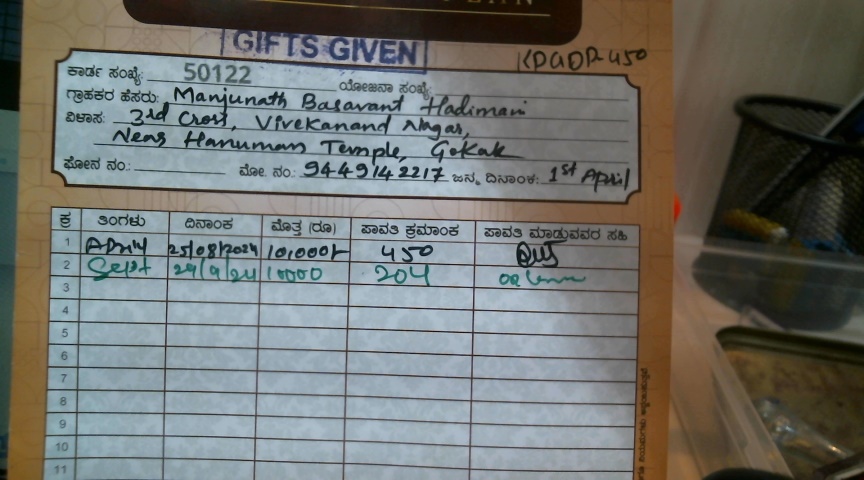 GIFTS GIVEN
KDGDP-450
ಕಾರ್ಡ ಸಂಖ್ಯೆ: 50122 ಯೋಜನಾ ಸಂಖ್ಯೆ:
ಗ್ರಾಹಕರ ಹೆಸರು: Manjunath Basavant Hadimani
ವಿಳಾಸ: 3rd Cross, Vivekanand Nagar,
Near Hanuman Temple, Gokak
ಫೋನ ನಂ.: ಮೋ. ನಂ.: 9449142217 ಜನ್ಮ ದಿನಾಂಕ: 1st April
ಕ್ರ ತಿಂಗಳು ದಿನಾಂಕ ಮೊತ್ತ (ರೂ) ಪಾವತಿ ಕ್ರಮಾಂಕ ಪಾವತಿ ಮಾಡುವವರ ಸಹಿ
1 25/08/2024 10,000/- 450
2 Sept 24/9/24 10000 204
3
4
5
6
7
8
9
10
11